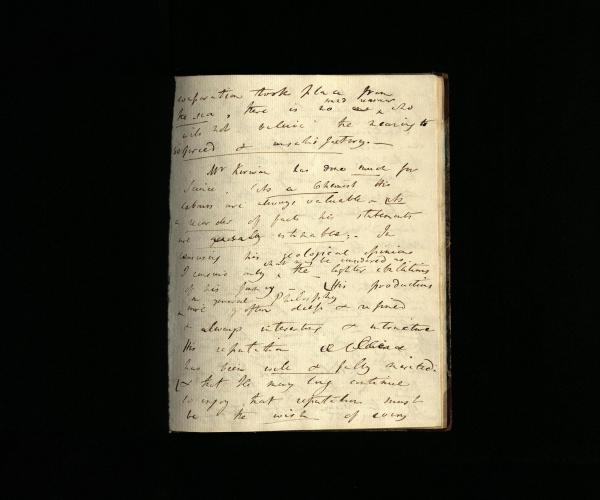 evaporation took place from
the sea, there is no man who
will not believe the reasoning to
be forced & unsatisfactory. —
Mr Kirwan has done much for
Science. As a Chemist His
labours are always valuable. As
a recorder of facts his statements
are estimable. In
censuring his geological opinions
what must be considered as
I censure only the lighter ebullitions
of his fancy – His productions
in general Philosophy
are often deep & refined
& always interesting & instructive
His reputation
has been & fully merited.
& that He may long continue
to enjoy that reputation must
be the wish of every